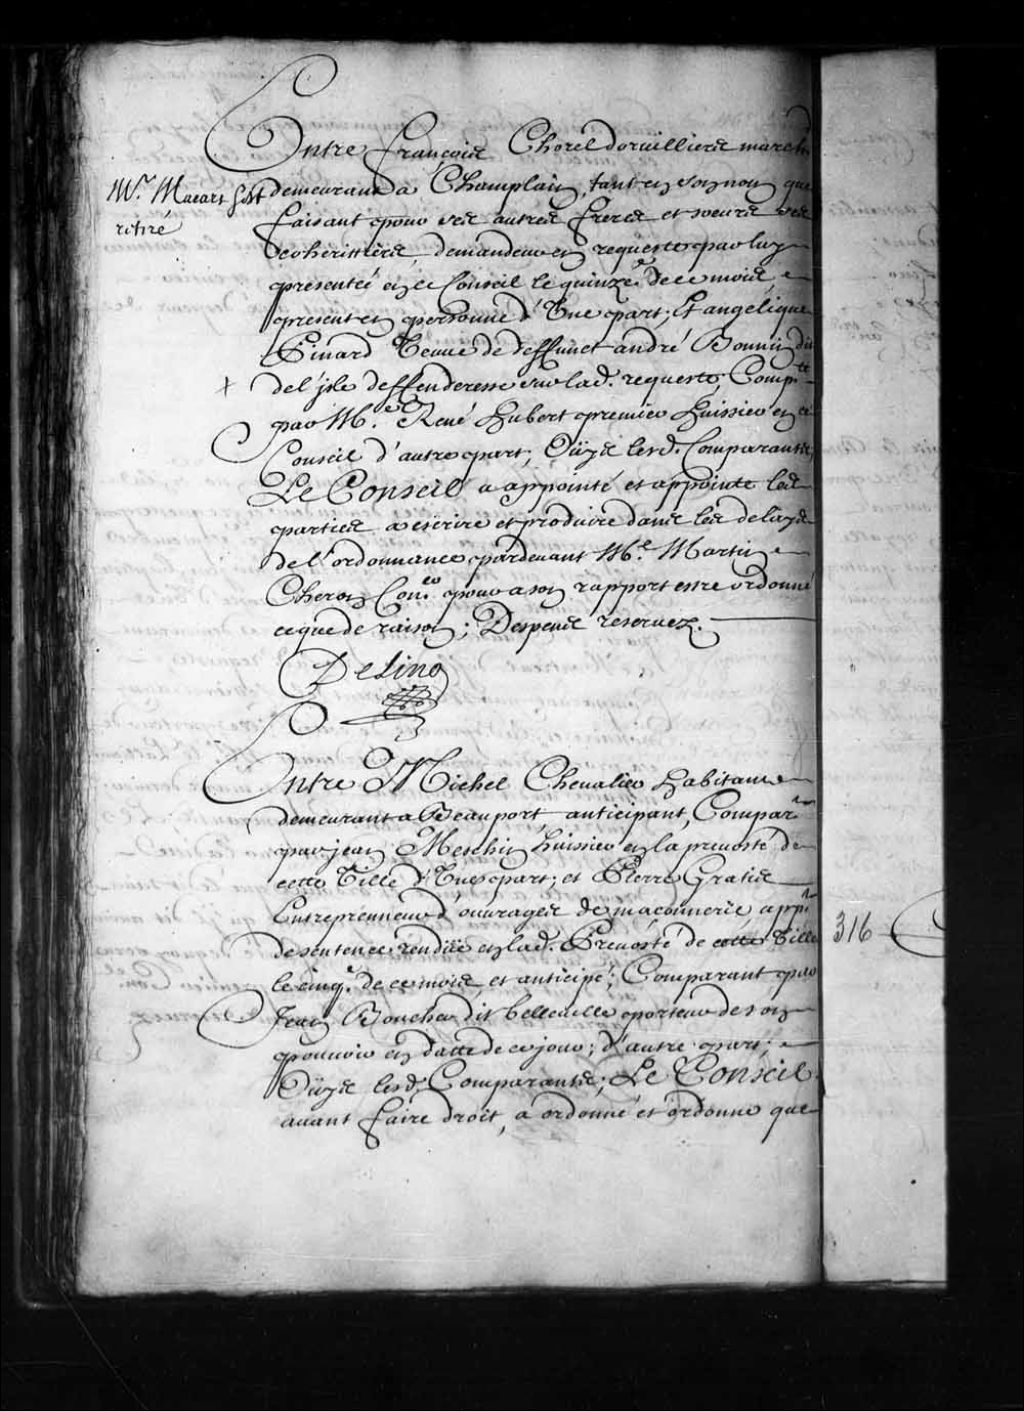 Entre françois Chorel dorvilliers march
Mr. Macart s'est
retiré
demeurant a Champlain, tant en son nom que
faisant pour ses autres freres et soeurs ses
coherittiers, demandeur en requeste par luy
presentée en ce Conseil le quinze.e de ce mois,
present en personne d'Une part; Et angelique
Pinard Veuve de deffunct andré Bonnin dit
x del'jsle deffenderesse sur lad. requeste, Comp.te
par M.e René Hubert premier huissier en ce
Conseil d'autre part; Oüys lesd. Comparants,
Le Conseil a appointé et appointe les
parties a escrire et produire dans les delays
de l'ordonnance pardevant M.e Martin
Cheron Con.er pour a son rapport estre ordonné
ce que de raison; Despens reservez.
DeLino
Entre Michel Chevalier habitant
demeurant a Beauport, anticipant, Compar.t
par jean Meschin huissier en la prevosté de
cette Ville d'Une part; et Pierre Gratis
Entreprenneur d'ouvrages de maçonnerie app.t
de sentence rendüe en lad. Prevosté de cette Ville
le cinq.e de ce mois, et anticipé; Comparant par
Jean Boucher dit belleville porteur de son
pouvoir en datte de ce jour; d'autre part;
Oüys lesd. Comparants; Le Conseil
avant faire droit, a ordonné et ordonne que
316